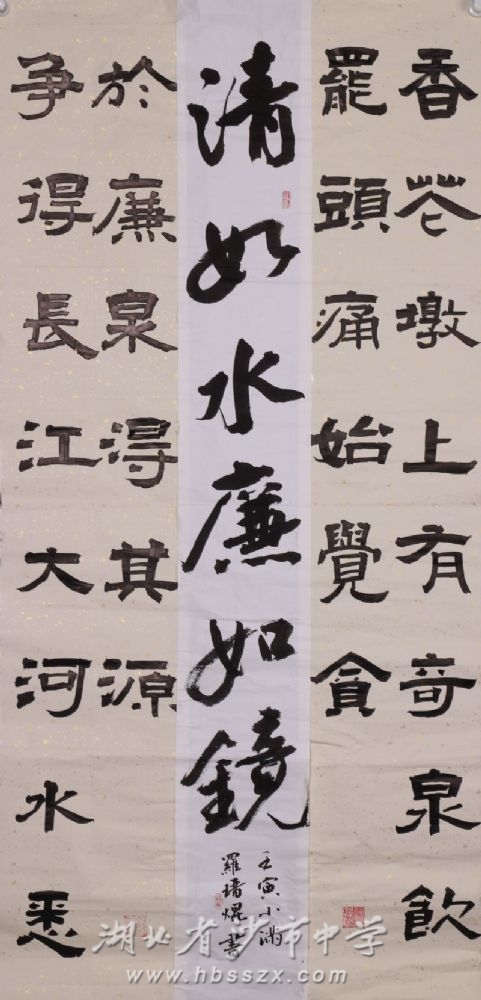 香花墩上有奇泉飲
罷頭痛始覺貪
清如水廉如鏡
壬寅小满
羅 焜書
争得長江大河水悉
於廉泉淂其源
湖北省沙市中学
www.hbsszx.com